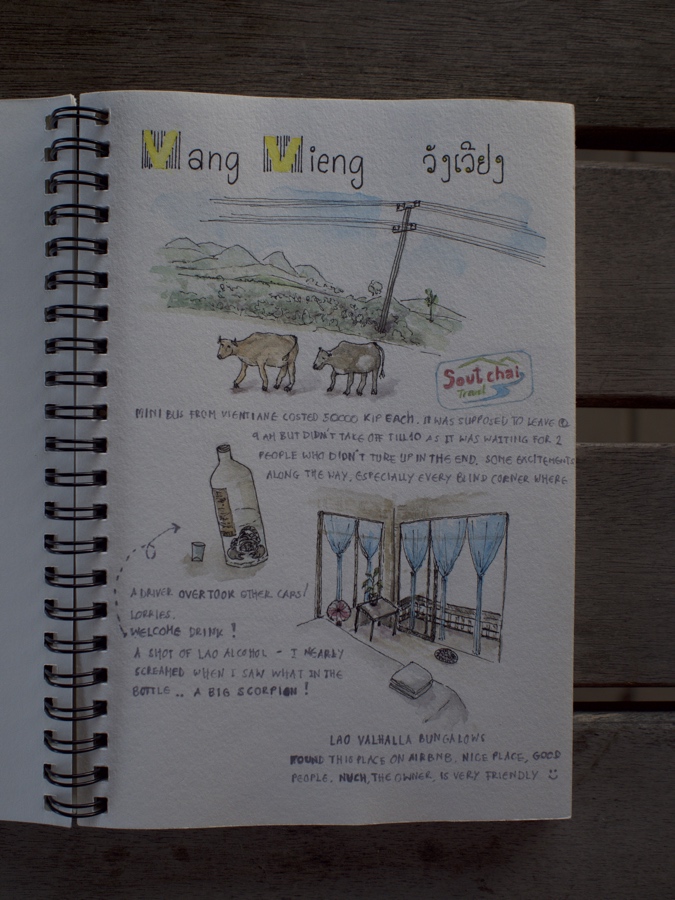 Vang Vieng วังเวียง
Sout chai
Travel
MINI BUS FROM VIENTIANE COSTED 50000 KIP EACH. IT WAS SUPPOSED TO LEAVE @
9 AM BUT DIDN'T TAKE OFF TILL 10 AS IT WAS WAITING FOR 2
PEOPLE WHO DIDN'T TURE UP IN THE END. SOME EXCITEMENTS
ALONG THE WAY, ESPECIALLY EVERY BLIND CORNER WHERE
A DRIVER OVERTOOK OTHER CARS/
LORRIES.
WELCOME DRINK!
A SHOT OF LAO ALCOHOL - I NEARLY
SCREAMED WHEN I SAW WHAT IN THE
BOTTLE .. A BIG SCORPION!
LAO VALHALLA BUNGALOWS
FOUND THIS PLACE ON AIRBNB. NICE PLACE, GOOD
PEOPLE. NUCH, THE OWNER, IS VERY FRIENDLY